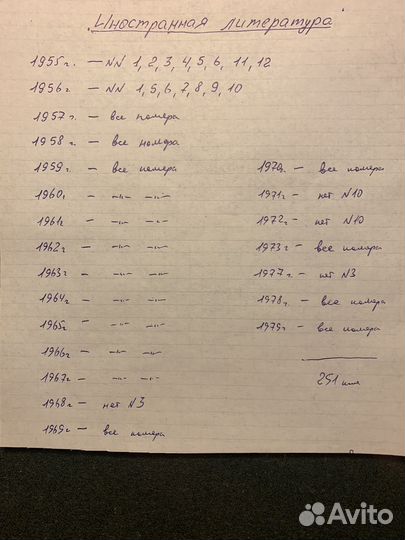 Иностранная литература
1955г. – NN 1, 2, 3, 4, 5, 6, 11, 12
1956г – NN 1, 5, 6, 7, 8, 9, 10
1957г. – все номера
1958г. – все номера
1959г. – все номера
1960г. – –"– –"–
1961г – –"– –"–
1962г – –"– –"–
1963г – –"– –"–
1964г – –"– –"–
1965г – –"– –"–
1966г – –"– –"–
1967г – –"– –"–
1968г – нет N3
1969г – все номера
1970г. – все номера
1971г – нет N10
1972г. – нет N10
1973г – все номера
1977г. – нет N3
1978г. – все номера
1979г – все номера
251 шт
Avito